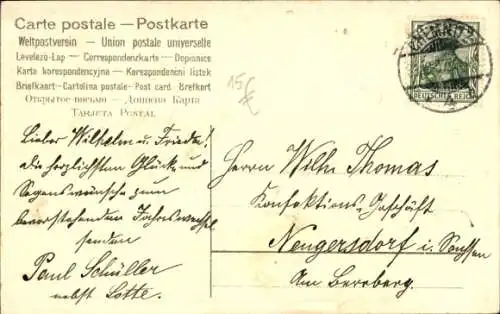 Carte postale — Postkarte
Weltpostverein — Union postale universelle
Levelezö-Lap — Correspondenzkarte — Dopisnice
Karta korespondencyjna — Korespondenčni listek
Briefkaart — Cartolina postale — Post card Brefkort
Открытое письмо — Дописна Карта
Tarjeta Postal
15 €
CHEMNITZ
DEUTSCHES REICH
Lieber Wilhelm u. Frieda!
die herzlichsten Glück- und
Segenswünsche zum
bevorstehenden Jahreswechsel
senden
Paul Schüller
nebst Lotte.
Herrn Wilh. Thomas
Konfektions-Geschäft
Neugersdorf i. Sachsen
Am